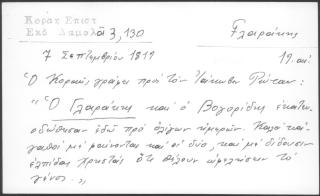 Κοραῆ Ἐπιστ.
Ἐκδ. Δαμαλᾶ 3, 130
Γλαράκης
7 Σεπτεμβρίου 1819
19. αἰ.
Ὁ Κοραῆς γράφει πρὸς τὸν Ἰάκωβον Ρώταν:
"Ὁ Γλαράκης καὶ ὁ Βογορίδης ἐκατω-
δώθησαν ἐδῶ πρὸ ὀλίγων ἡμερῶν. Καλοὶ κἀ-
γαθοὶ μὲ φαίνονται καὶ οἱ δύο, καὶ μὲ δίδουσιν
ἐλπίδας χρηστὰς ὅτι θέλουν ὠφελήσειν τὸ
γένος."